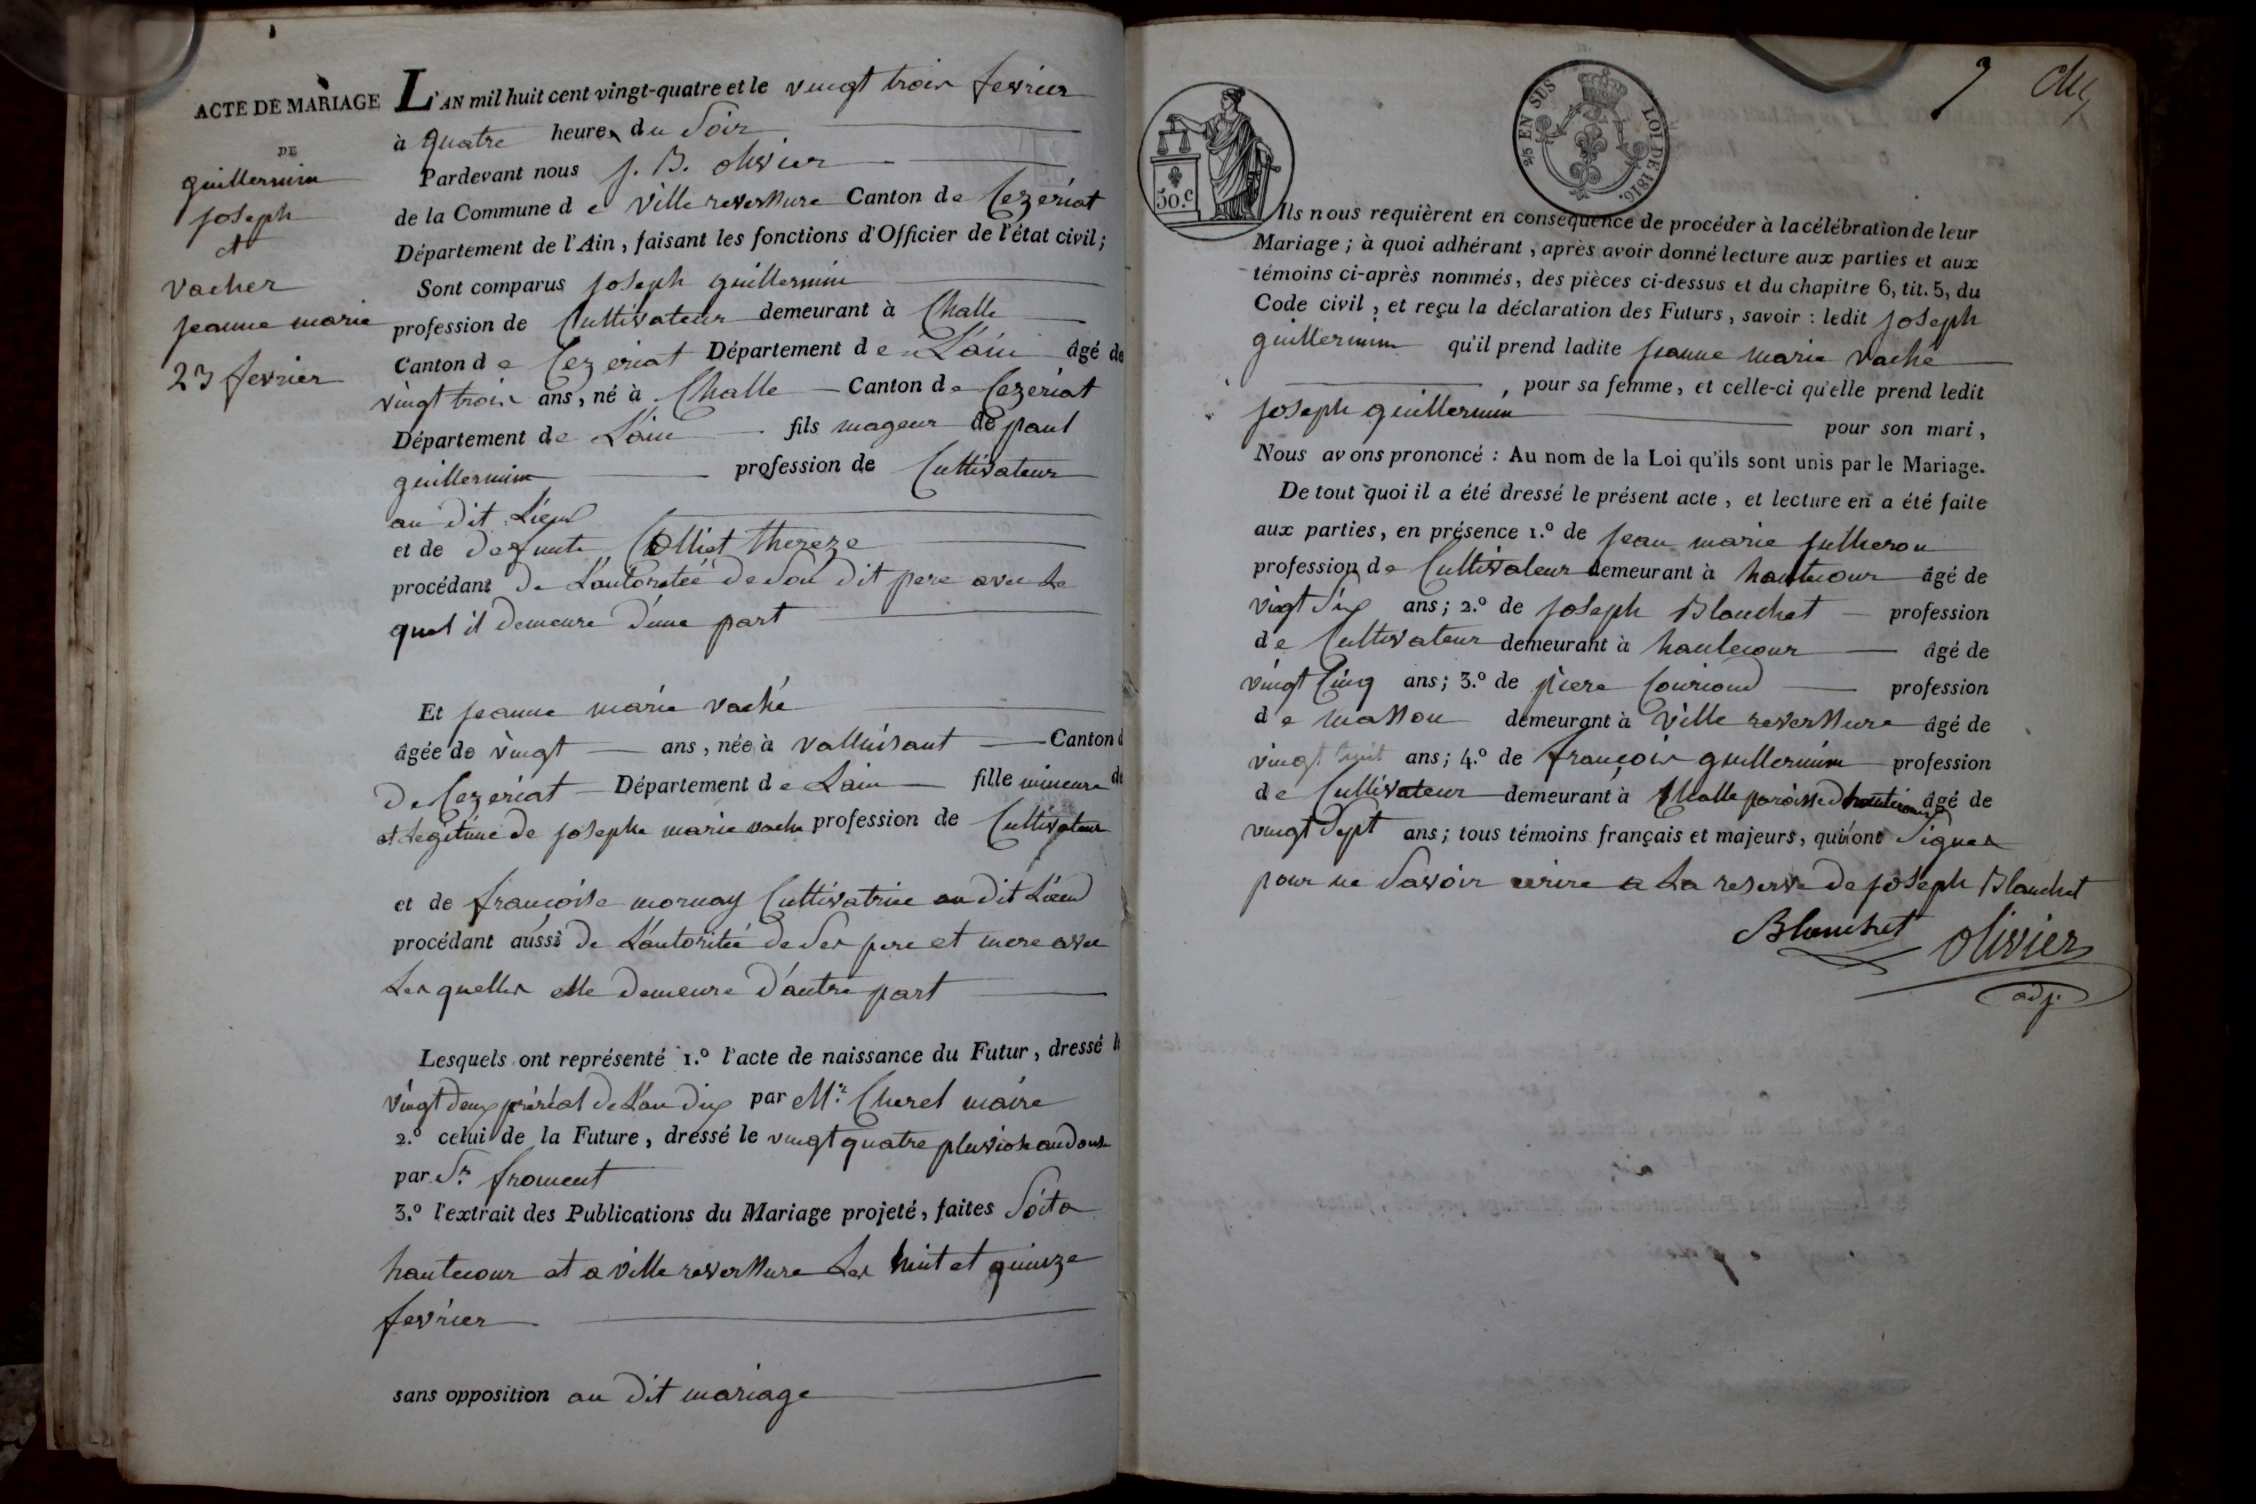 ACTE DE MARIAGE
DE
guillermin
joseph
et
vacher
jeanne marie
23 fevrier
L'AN mil huit cent vingt-quatre et le vingt trois fevrier
à quatre heures du Soir
Pardevant nous J. B. olivier
de la Commune de Ville reversure Canton de Cezeriat
Département de l'Ain, faisant les fonctions d'Officier de l'état civil;
Sont comparus joseph guillermin
profession de Cultivateur demeurant à Challe
Canton de Cezeriat Département de L'ain âgé de
vingt trois ans, né à Challe Canton de Cezeriat
Département de L'ain fils mageur de paul
guillermin profession de Cultivateur
au dit Lieu
et de defunte Colliet thereze
procédant de L'autoritée de Son dit pere avec Le
quel il demeure d'une part
Et jeanne marie vaché
âgée de vingt ans, née à valluisant Canton d
De Cezeriat Département de Lain fille mineure de
et Legitime de joseph marie vache profession de Cultivateur
et de francoise mornay Cultivatrice au dit Lieu
procédant aussi de L'autoritée de Ses pere et mere avec
Les quelles elle demeure d'autre part
Lesquels ont représenté 1.º l'acte de naissance du Futur, dressé le
vingt deux prérial de L'an dix par Mr. Cherel maire
2.º celui de la Future, dressé le vingt quatre pluviose an douze
par Sr. froment
3.º l'extrait des Publications du Mariage projeté, faites Soit a
hautecour et a ville reversure Les huit et quinze
fevrier
sans opposition au dit mariage
7
50.C
25 EN SUS
LOI DE 1816.
Ils nous requièrent en conséquence de procéder à la célébration de leur
Mariage; à quoi adhérant, après avoir donné lecture aux parties et aux
témoins ci-après nommés, des pièces ci-dessus et du chapitre 6, tit. 5, du
Code civil, et reçu la déclaration des Futurs, savoir: ledit joseph
guillermin qu'il prend ladite jeanne marie vaché
, pour sa femme, et celle-ci qu'elle prend ledit
joseph guillermin pour son mari,
Nous avons prononcé: Au nom de la Loi qu'ils sont unis par le Mariage.
De tout quoi il a été dressé le présent acte, et lecture en a été faite
aux parties, en présence 1.º de jean marie jutheron
profession de Cultivateur demeurant à hautecour âgé de
vingt Six ans; 2.º de joseph Blanchet profession
de Cultivateur demeurant à hautecour âgé de
vingt Cinq ans; 3.º de piere Courioud profession
de masson demeurant à Ville reversure âgé de
vingt huit ans; 4.º de françois guillermin profession
de Cultivateur demeurant à Challe paroisse d'hautecour âgé de
vingt Sept ans; tous témoins français et majeurs, qui n'ont Signer
pour ne Savoir ecrire a La reserve de joseph Blanchet
Blanchet olivier
adj.